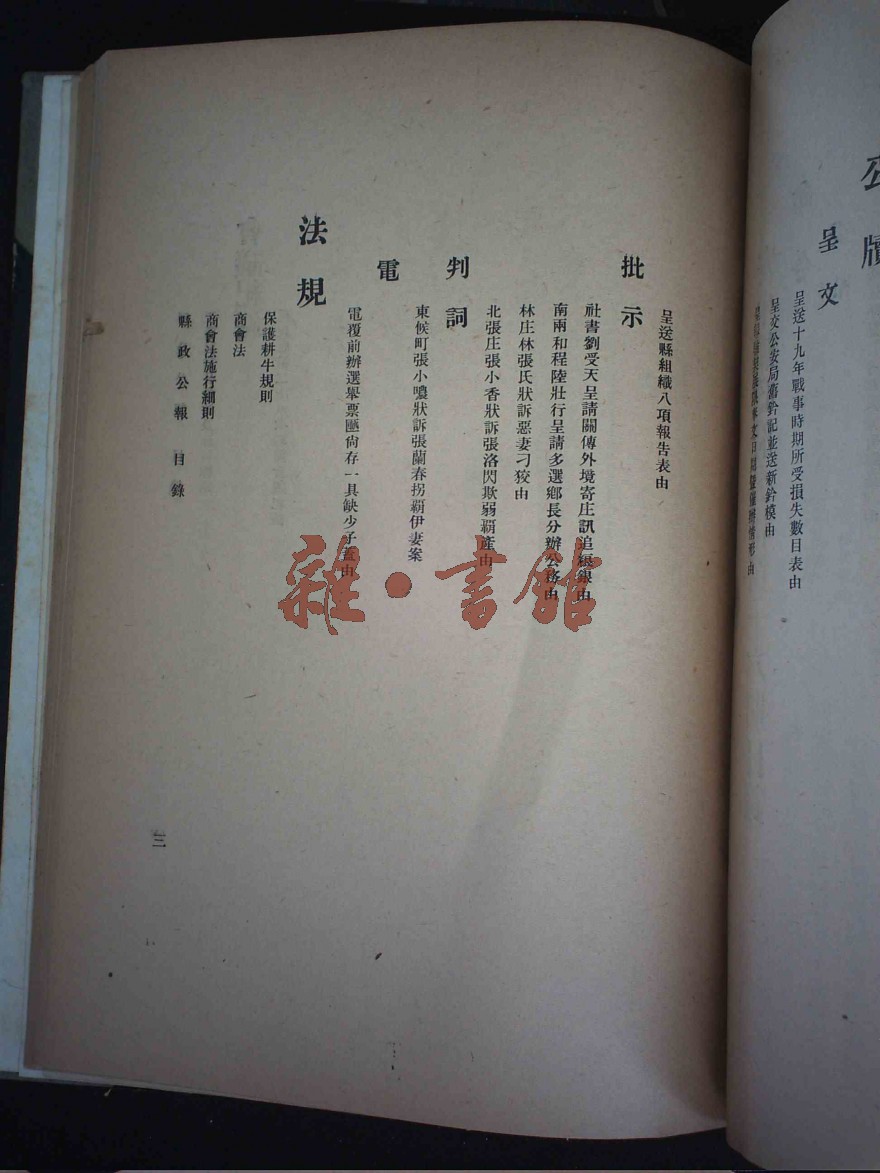 公牘
呈文
呈送十九年戰事時期所受損失數目表由
呈交公安局舊鈐記並送新鈐模由
呈送縣組織八項報告表由
批示
社書劉受天呈請關傳外境寄庄訊追糧銀由
南兩和程陸壯行呈請多選鄉長分辦公務由
林庄林張氏狀訴惡妻刁狡由
北張庄張小香狀訴張洛閃欺弱霸產由
判詞
東候町張小噥狀訴張蘭春拐霸伊妻案
電
電覆前辦選舉票匭尙存一具缺少子蓋由
法規
保護耕牛規則
商會法
商會法施行細則
縣政公報 目錄
三
雜·書館